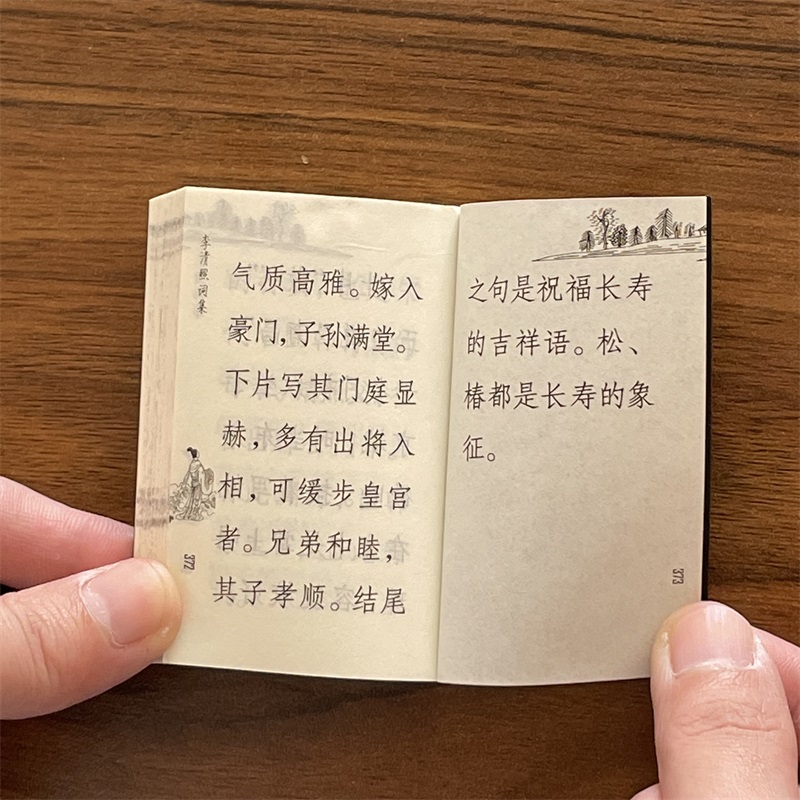 李清照词集
气质高雅。嫁入
豪门，子孙满堂。
下片写其门庭显
赫，多有出将入
相，可缓步皇宫
者。兄弟和睦，
其子孝顺。结尾
372
之句是祝福长寿
的吉祥语。松、
椿都是长寿的象
征。
373